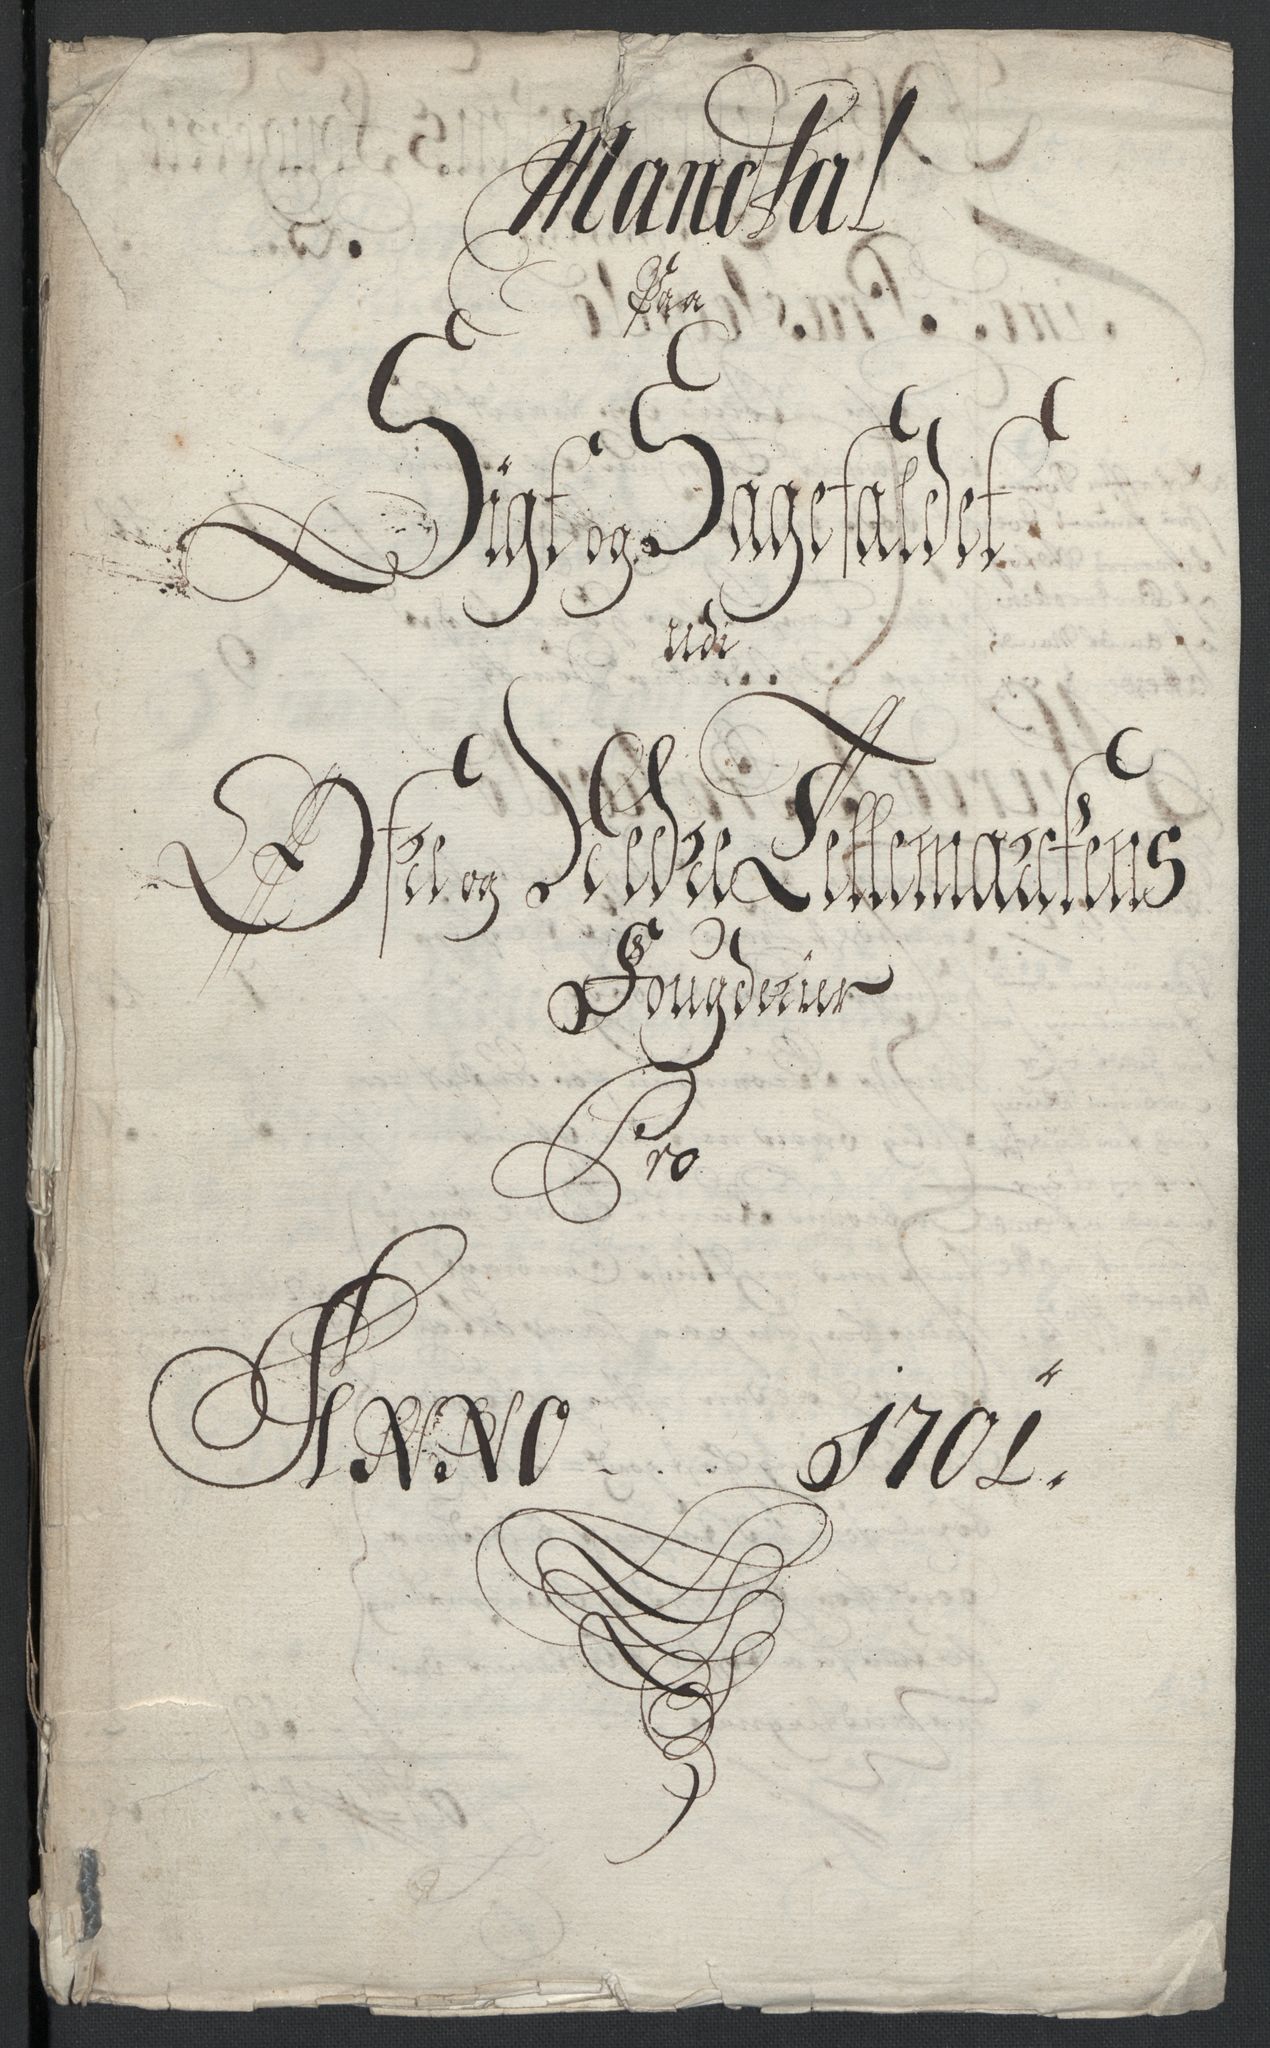 Mandtal
Paa
Sigt og Sagefaldet
udi
Øfre og Nedre Tellemarckens
Fougderier
Pro
ANNO 1701.